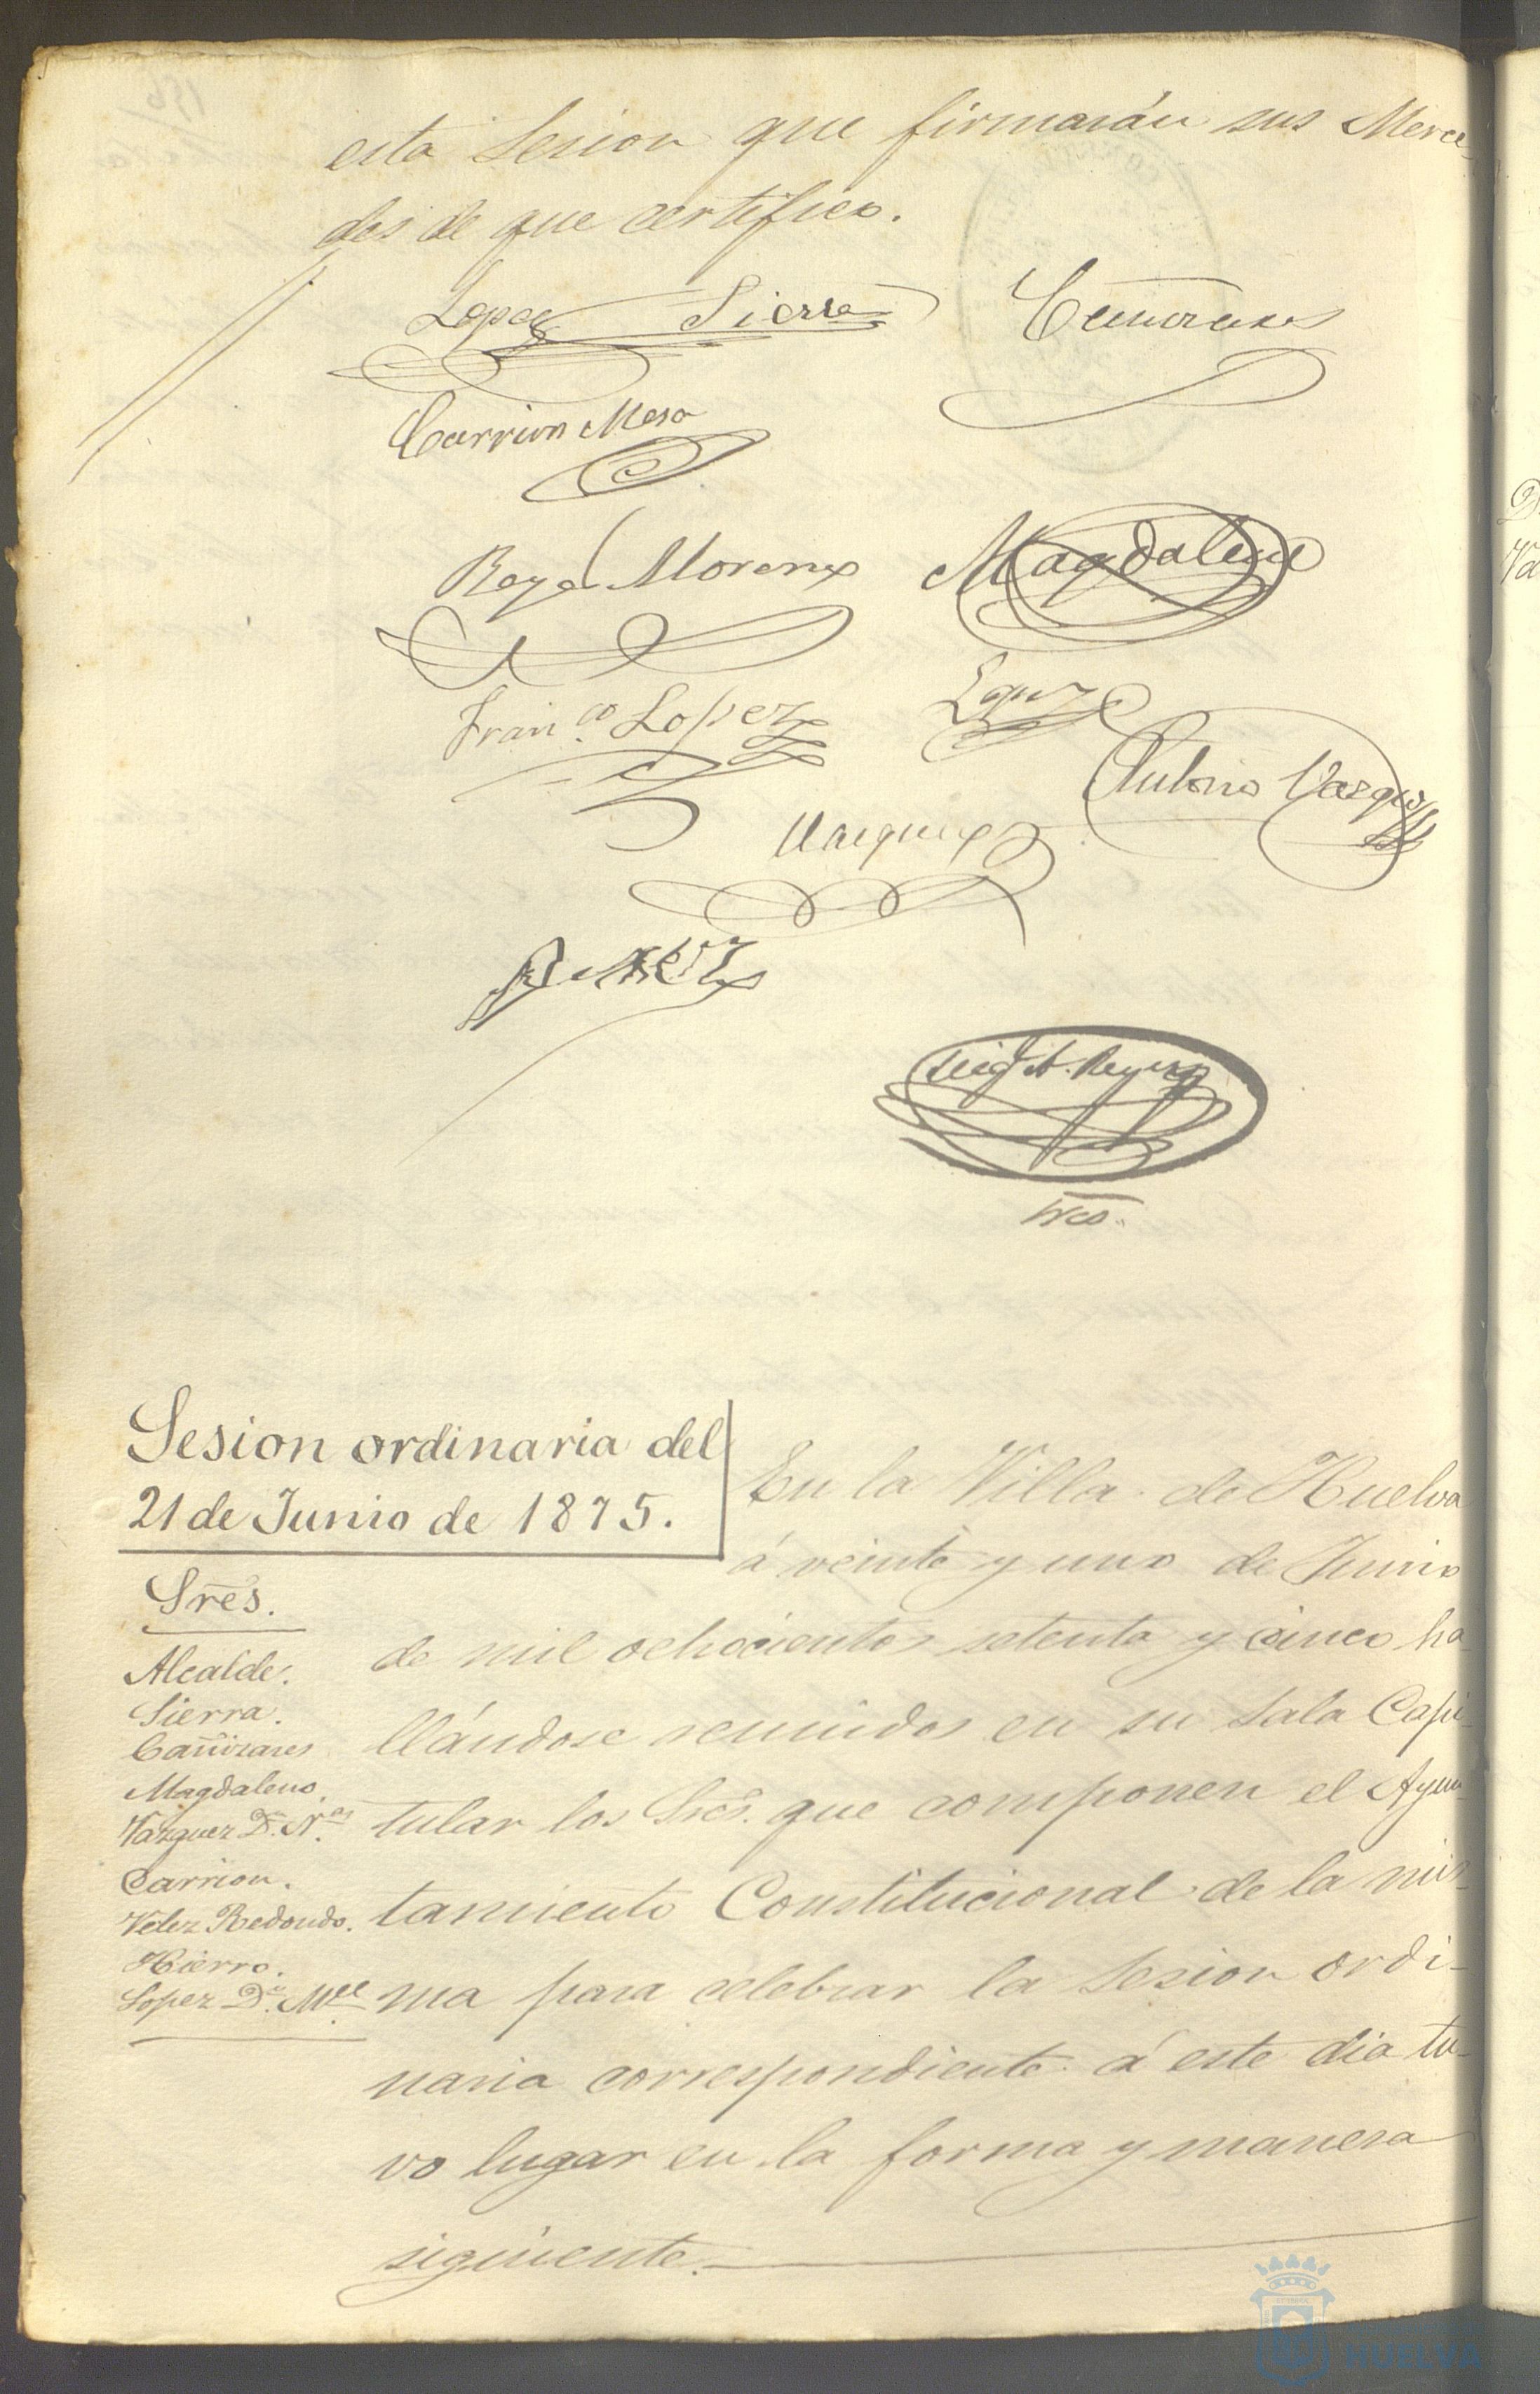 esta Sesion que firmarán sus Merce-
des de que certifico.
Lopez Sierra Cañizares
Carrion Mesa
Moreno Magdaleno
Fran.co Lopez Lopez
Antonio Vazquez
Vazquez
Srio.
Sesion ordinaria del
21 de Junio de 1875.
Sres.
Alcalde.
Sierra.
Cañizares
Magdaleno.
Vazquez Dn. N.as
Carrion.
Velez Redondo.
Hierro.
Lopez Dn. M.el
En la Villa de Huelva
á veinte y uno de Junio
de mil ochocientos setenta y cinco ha
llándose reunidos en su Sala Capi-
tular los Sres. que componen el Ayun-
tamiento Constitucional de la mis-
ma para celebrar la Sesion ordi-
naria correspondiente á este dia tu-
vo lugar en la forma y manera
siguiente.
HUELVA